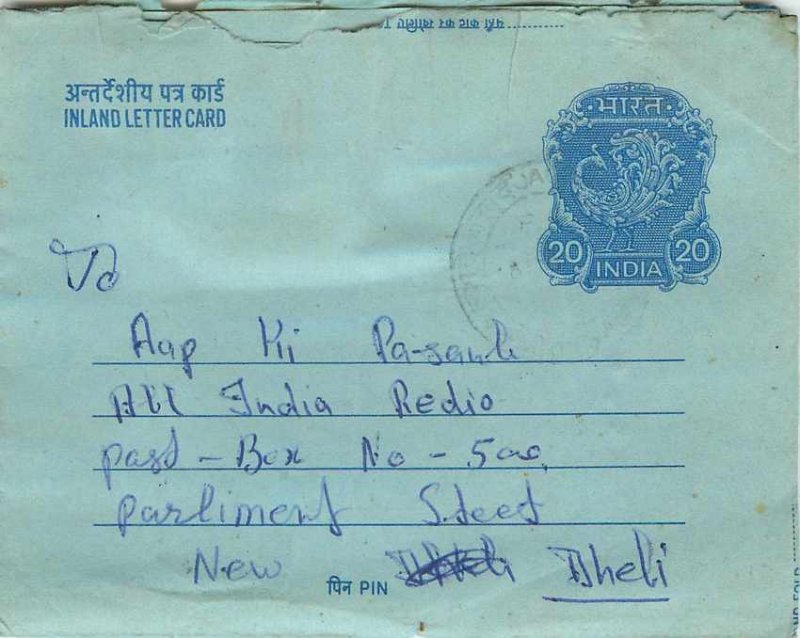 यहाँ काट कर खोलिए
अन्तर्देशीय पत्र कार्ड
INLAND LETTER CARD
भारत
20 20
INDIA
To
Aap Ki Pasand
All India Redio
past - Box No - 500,
parliment Steet
New Dheli
पिन PIN